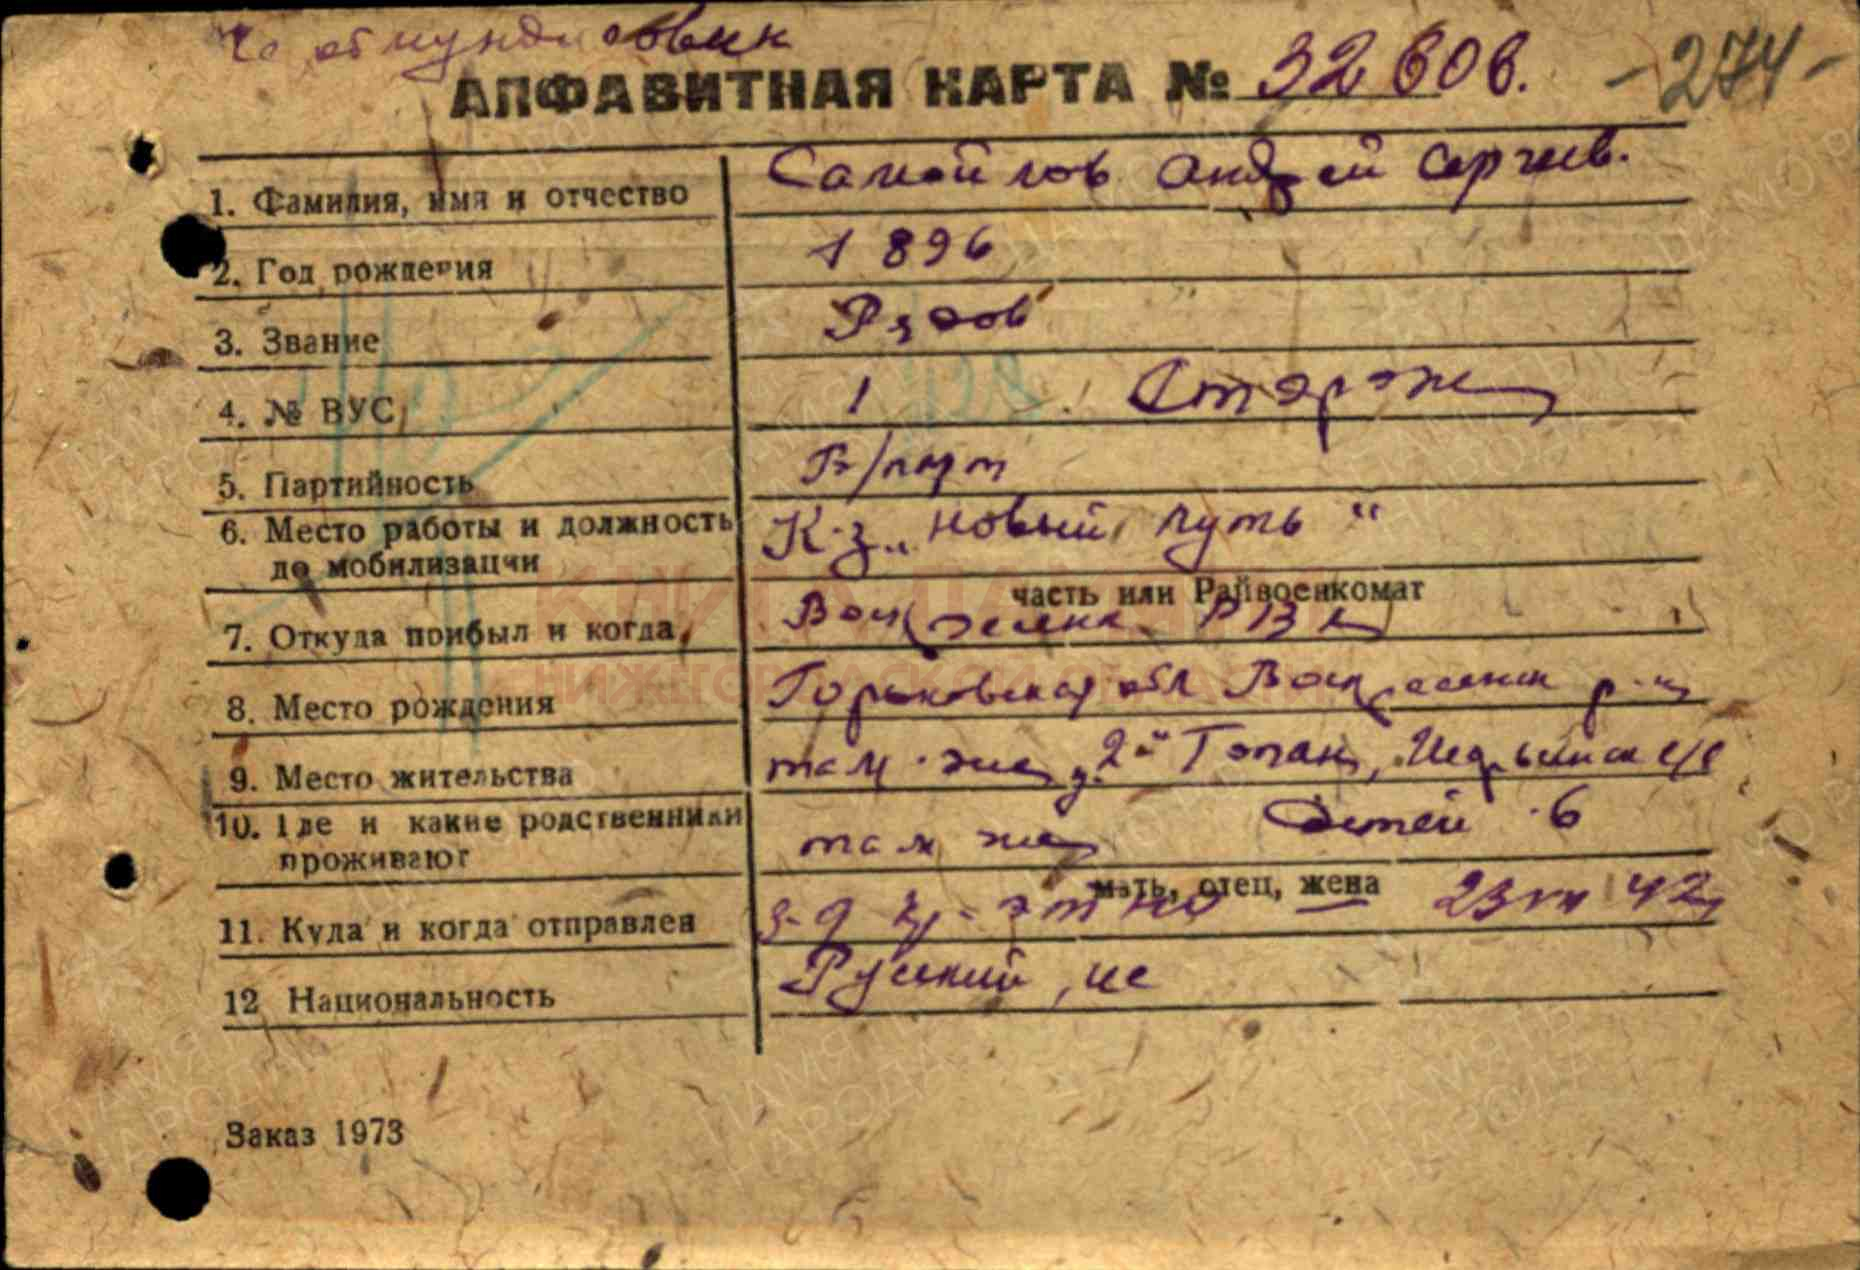 АЛФАВИТНАЯ КАРТА № 32606. -274-
1. Фамилия, имя и отчество Самойлов Андрей Сергеев.
2. Год рождения 1896
3. Звание Рядов
4. № ВУС 1 Сторож
5. Партийность Б/парт
6. Место работы и должность до мобилизации К-з „Новый путь“
часть или Райвоенкомат
7. Откуда прибыл и когда РВК
8. Место рождения Горьковская обл р-н
9. Место жительства там-же д. 2й с/с
10. Где и какие родственники проживают там же Детей 6
мать, отец, жена
11. Куда и когда отправлен 42
12 Национальность Русский,
Заказ 1973
КНИГА ПАМЯТИ
НИЖЕГОРОДСКОЙ ОБЛАСТИ
ПАМЯТЬ
НАРОДА